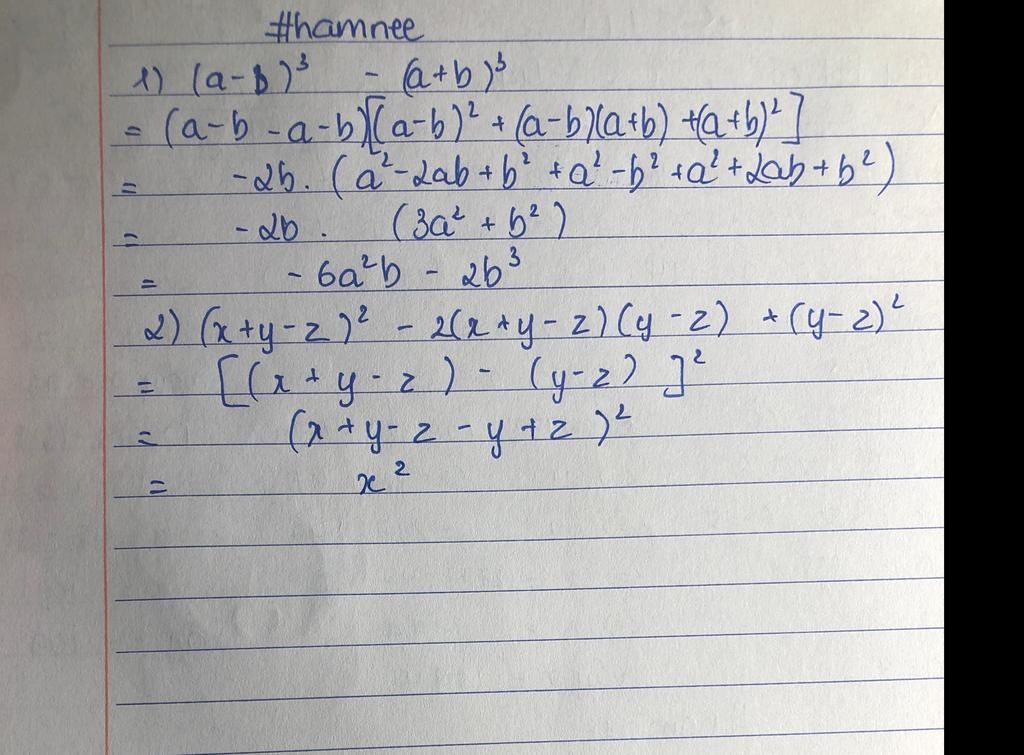 #hamnee
1) (a-b)³ - (a+b)³
= (a-b-a-b)[(a-b)² + (a-b)(a+b) +(a+b)²]
= -2b. (a²-2ab+b² +a²-b² +a²+2ab+b²)
= -2b. (3a² + b²)
= -6a²b - 2b³
2) (x+y-z)² - 2(x+y-z)(y-z) + (y-z)²
= [(x+y-z) - (y-z)]²
= (x+y-z-y+z)²
= x²